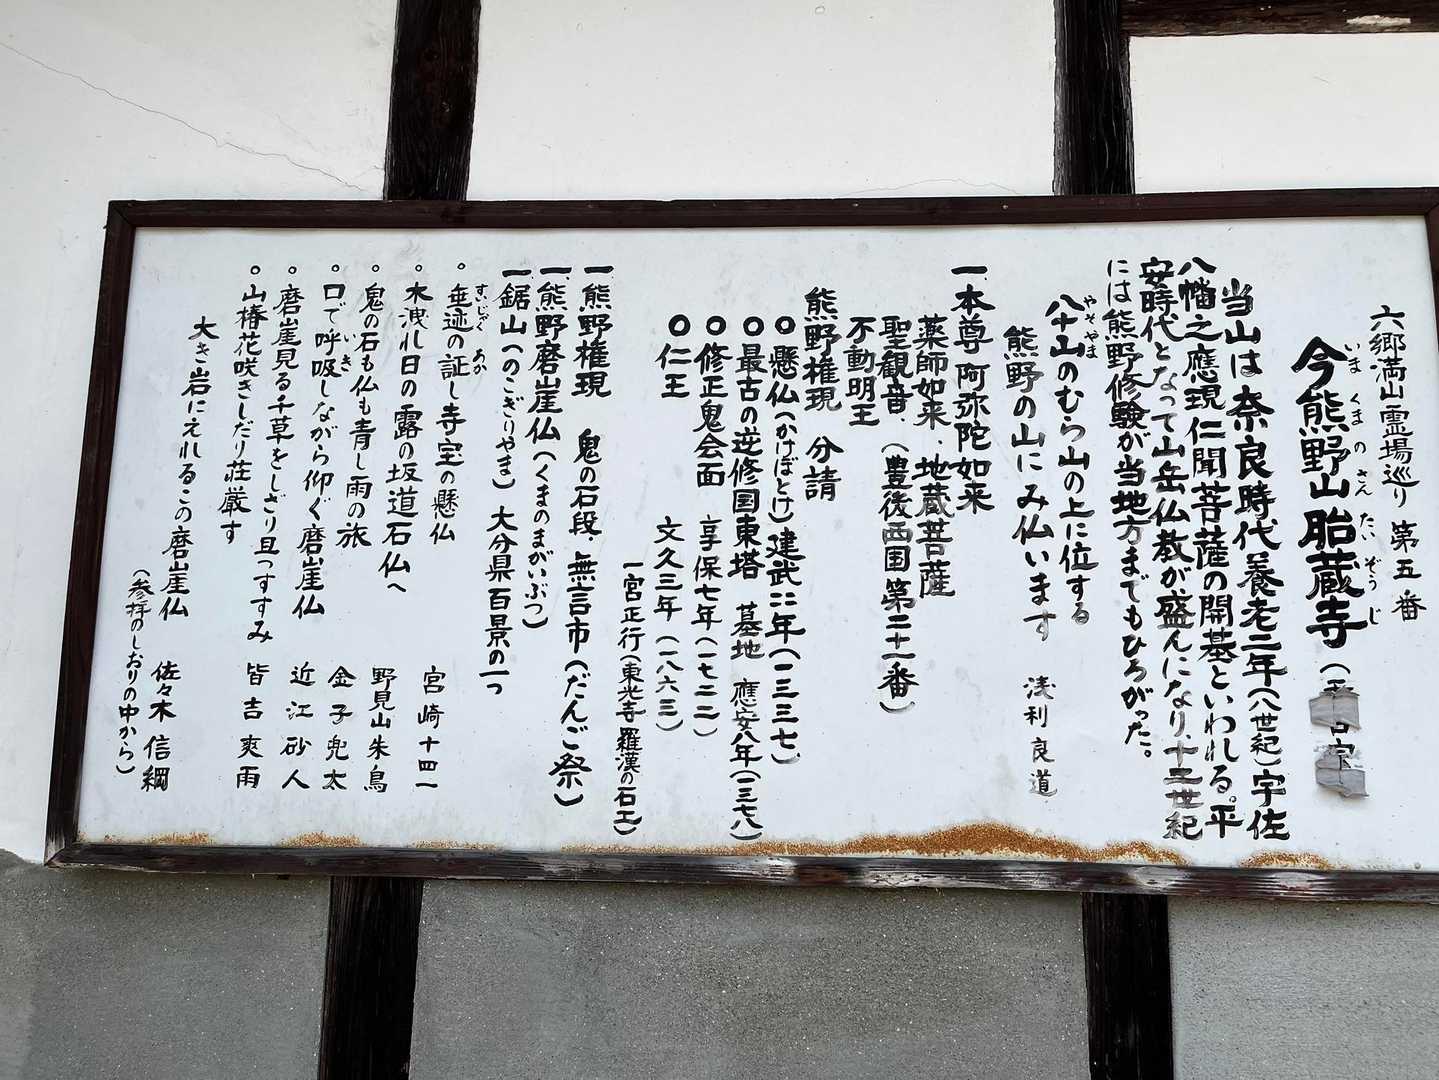 六郷満山霊場巡り 第五番
今熊野山胎蔵寺
いま くま の さん たい ぞう じ
当山は奈良時代養老二年(八世紀)宇佐
八幡之應現仁聞菩薩の開基といわれる。平
安時代となって山岳仏教が盛んになり、十二世紀
には熊野修験が当地方までもひろがった。
八十山のむら山の上に位する
やそやま
熊野の山にみ仏います 浅利良道
一、本尊 阿弥陀如来
薬師如来、地蔵菩薩
聖観音、(豊後西国第二十一番)
不動明王
熊野権現 分請
○懸仏(かけぼとけ)建武二年(一三三七、)
○最古の逆修国東塔 墓地 應安八年(一三七八)
○修正鬼会面 享保七年(一七二二)
○仁王 文久三年(一八六三)
一宮正行(東光寺羅漢の石工)
一、熊野権現 鬼の石段、無言市(だんご祭)
一、熊野磨崖仏(くまのまがいぶつ)
一、鋸山(のこぎりやま)大分県百景の一つ
すいじゃく あか
○垂迹の証し寺宝の懸仏 宮崎十四一
○木洩れ日の露の坂道石仏へ 野見山朱鳥
○鬼の石も仏も青し雨の旅 金子兜太
いき
○口で呼吸しながら仰ぐ磨崖仏 近江砂人
○磨崖見る千草をしざり且つすすみ 皆吉爽雨
○山椿花咲きしだり荘厳す
大き岩にえれるこの磨崖仏 佐々木信綱
(参拝のしおりの中から)